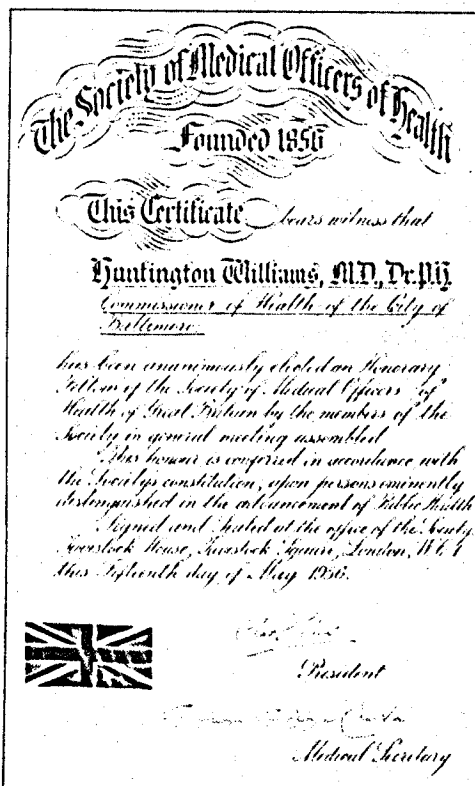 The Society of Medical Officers of Health
Founded 1856
This Certificate bears witness that
Huntington Williams, M.D., Dr.P.H.
Commissioner of Health of the City of
Baltimore
has been unanimously elected an Honorary
Fellow of the Society of Medical Officers of
Health of Great Britain by the members of the
Society in general meeting assembled
This honour is conferred in accordance with
the Society's constitution, upon persons eminently
distinguished in the advancement of Public Health
Signed and Sealed at the office of the Society
Tavistock House, Tavistock Square, London, W.C.1
this Fifteenth day of May 1956.
President
Medical Secretary